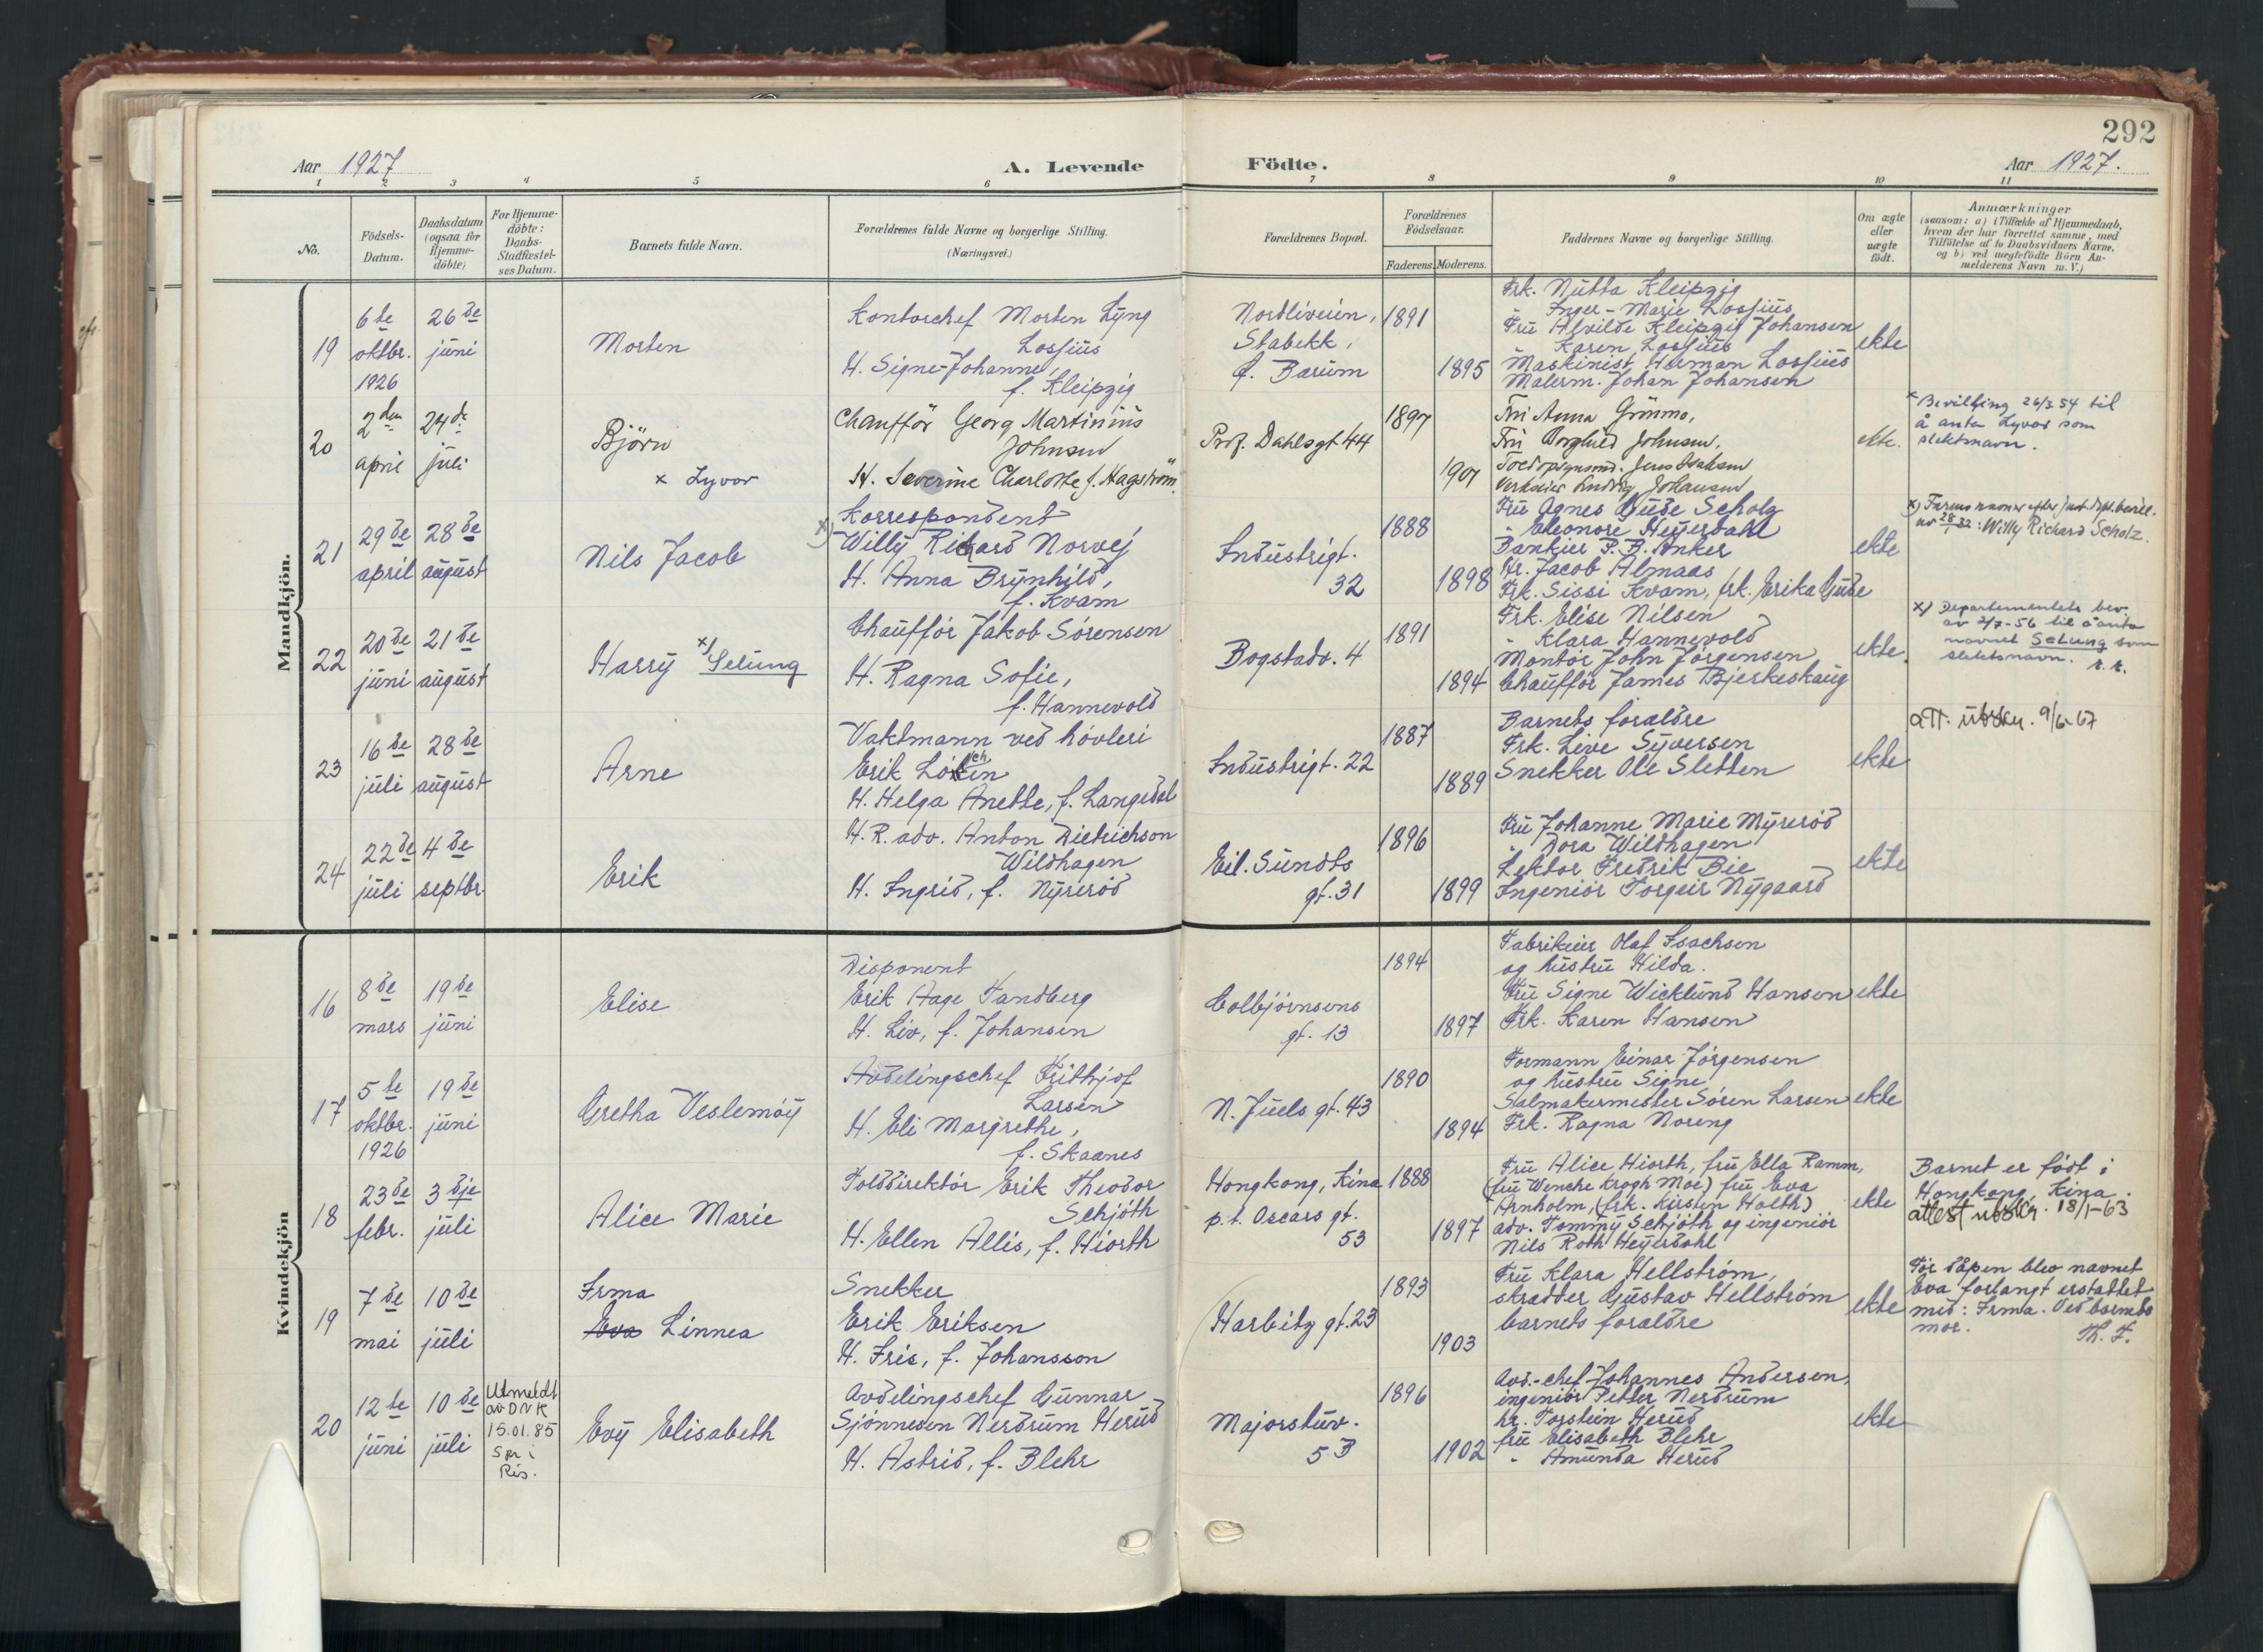 292
Aar 1927
A. Levende
Födte.
Aar 1927.
1 2 3 4 5 6 7 8 9 10 11
No.
Födsels-
Datum.
Daabsdatum
(ogsaa for
Hjemme-
döbte)
For Hjemme-
döbte:
Daabs-
Stadfæstel-
ses Datum.
Barnets fulde Navn.
Forældrenes fulde Navne og borgerlige Stilling.
(Næringsvei.)
Forældrenes Bopæl.
Forældrenes
Födselsaar.
Faderens. Moderens.
Faddernes Navne og borgerlige Stilling.
Om ægte
eller
uægte
födt.
Anmærkninger
(saasom: a) i Tilfælde af Hjemmedaab,
hvem der har forrettet samme, med
Tilföielse af to Daabsvidners Navne,
og b) ved uægtefödte Börn An-
melderens Navn m. V.)
Mandkjön.
19
6te
oktbr.
1926
26de
juni
Morten
Kontorchef Morten Lyng
Lossius
H. Signe-Johanne,
f. Kleipzig
Nordliveien,
Stabekk,
Ø. Bærum
1891
1895
Frk. Nutta Kleipzig
" Inger-Marie Lossius
Fru Alvilde Kleipzig Johansen
" Karen Lossius
Maskinist Herman Lossius
Malerm. Johan Johansen
ekte
20
2den
april
24de
juli
Björn
x Lyvor
Chaufför Georg Martinius
Johnsen
H. Severine Charlotte f. Hagström
Prof. Dahlsgt 44
1897
1901
Fru Anna Grönmo,
Fru Borghild Johnsen,
Verkseier Ludvig Johansen
ekte.
x Bevilling 26/3 54 til
å anta Lyvor som
slektsnavn.
21
29de
april
28de
august
Nils Jacob
Korrespondent
x) Willy Richard Norvej
H. Anna Brynhild,
f. Kvam
Industrigt.
32
1888
1898
Fru Agnes Gude Scholz
" Eleonore Heyerdahl
Bankier P. B. Anker
Hr. Jacob Almaas
Frk. Sissi Kvam, frk. Erika Gude
ekte
x) Farens navn efter just.dpt. bevil.
av 28/1 32: Willy Richard Scholz.
22
20de
juni
21de
august
Harry x) Selung
Chauffør Jakob Sørensen
H. Ragna Sofie,
f. Hannevold
Bogstadv. 4
1891
1894
Frk. Elise Nilsen
" Klara Hannevold
Montør John Jørgensen
Chauffør James Bjerkeskaug
ekte.
x) Departementets bev.
av 2/7-56 til å anta
navnet Selung som
slektsnavn. k.k.
23
16de
juli
28de
august
Arne
Vaktmann ved høvleri
Erik Løken
H. Helga Anette, f. Langedal
Industrigt. 22
1887
1889
Barnets forældre
Frk. Live Syversen
Snekker Ole Sletten
ekte
att. utskr. 9/6-67
24
22de
juli
4de
septbr.
Erik
H.R.adv. Anton Diedrichson
Wildhagen
H. Ingrid, f. Myrerød
Eil. Sundts
gt. 31
1896
1899
Fru Johanne Marie Myrerød
" Dora Wildhagen
Lektor Fredrik Bie
Ingeniør Torgeir Nygaard
ekte
Kvindekjön
16
8de
mars
19de
juni
Elise
Disponent
Erik Aage Tandberg
H. Liv, f. Johansen
Colbjørnsens
gt. 13
1894
1897
Fabrikeier Olaf Isachsen
og hustru Hilda.
Fru Signe Wicklund Hansen
Frk. Karen Hansen
ekte
17
5te
oktbr.
1926
19de
juni
Gretha Veslemøy
Avdelingschef Frithjof
Larsen
H. Eli Margrethe,
f. Skaanes
N. Juels gt. 43
1890
1894
Formann Einar Jørgensen
og hustru Signe
Salmakermester Søren Larsen
Frk. Ragna Noreng
ekte
18
23de
febr.
3dje
juli
Alice Marie
Tolddirektør Erik Theodor
Schjøth
H. Ellen Allis, f. Hiorth
Hongkong, Kina
p.t. Oscars gt.
53
1888
1897
Fru Alice Hiorth, fru Ella Ramm,
(fru Wenche Krogh Moe) fru Eva
Arnholm, (frk. Kirsten Holth)
adv. Tommy Schjøth og ingeniør
Nils Roth Heyerdahl
ekte
Barnet er født i
Hongkong, Kina.
attest utskr. 18/1-63
19
7de
mai
10de
juli
Irma
Eva Linnea
Snekker
Erik Eriksen
H. Iris, f. Johansson
Harbitz gt. 23
1893
1903
Fru Klara Hellstrøm,
skrædder Gustav Hellstrøm
barnets forældre
ekte
Før dåpen blev navnet
Eva forlangt erstattet
med: Irma. Ved barnets
mor. Th. F.
20
12te
juni
10de
juli
Utmeldt
av DNK
15.01.85
Spr i
Ris.
Evy Elisabeth
Avdelingschef Gunnar
Sjønnesen Nerdrum Herud
H. Astrid, f. Blehr
Majorstuv.
5B
1896
1902
Avd.-chef Johannes Andersen,
ingeniør Petter Nerdrum
hr. Torstein Herud
fru Elisabeth Blehr
" Amunda Herud
ekte